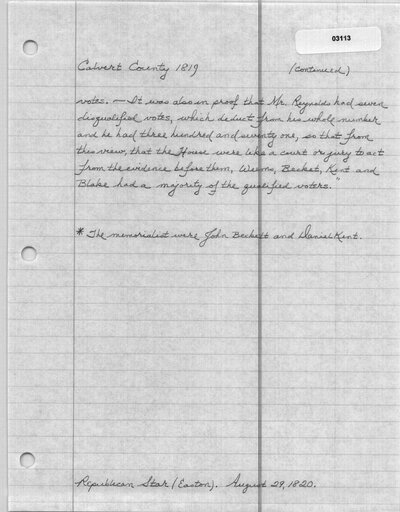 03113
Calvert County 1819 (continued)
votes. — It was also in proof that Mr. Reynolds had seven
disqualified votes, which deduct from his whole number
and he had three hundred and seventy one, so that from
this view, that the House were like a court or jury to act
from the evidence before them, Weems, Becket, Kent and
Blake had a majority of the qualified voters."
* The memorialist were John Beckett and Daniel Kent.
Republican Star (Easton). August 29, 1820.